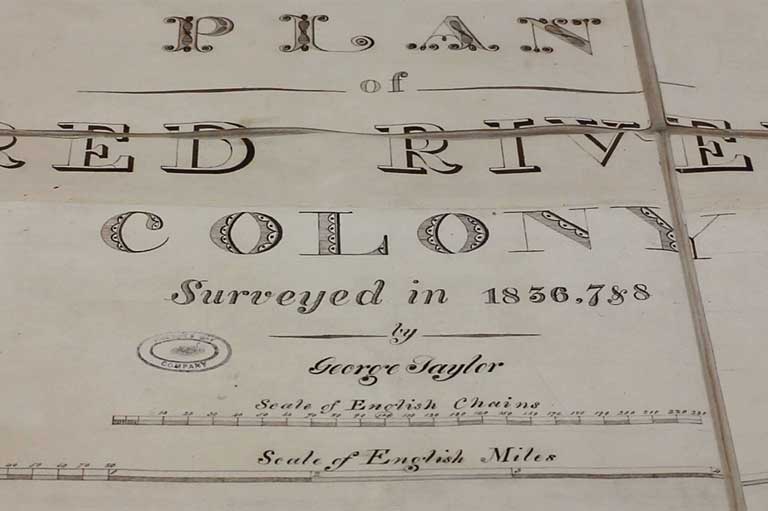 PLAN
of
RED RIVE
COLONY
Surveyed in 1836, 7 & 8
by
George Taylor
COMPANY
Scale of English Chains
10 20 30 40 50 60 70 80 90
Scale of English Miles